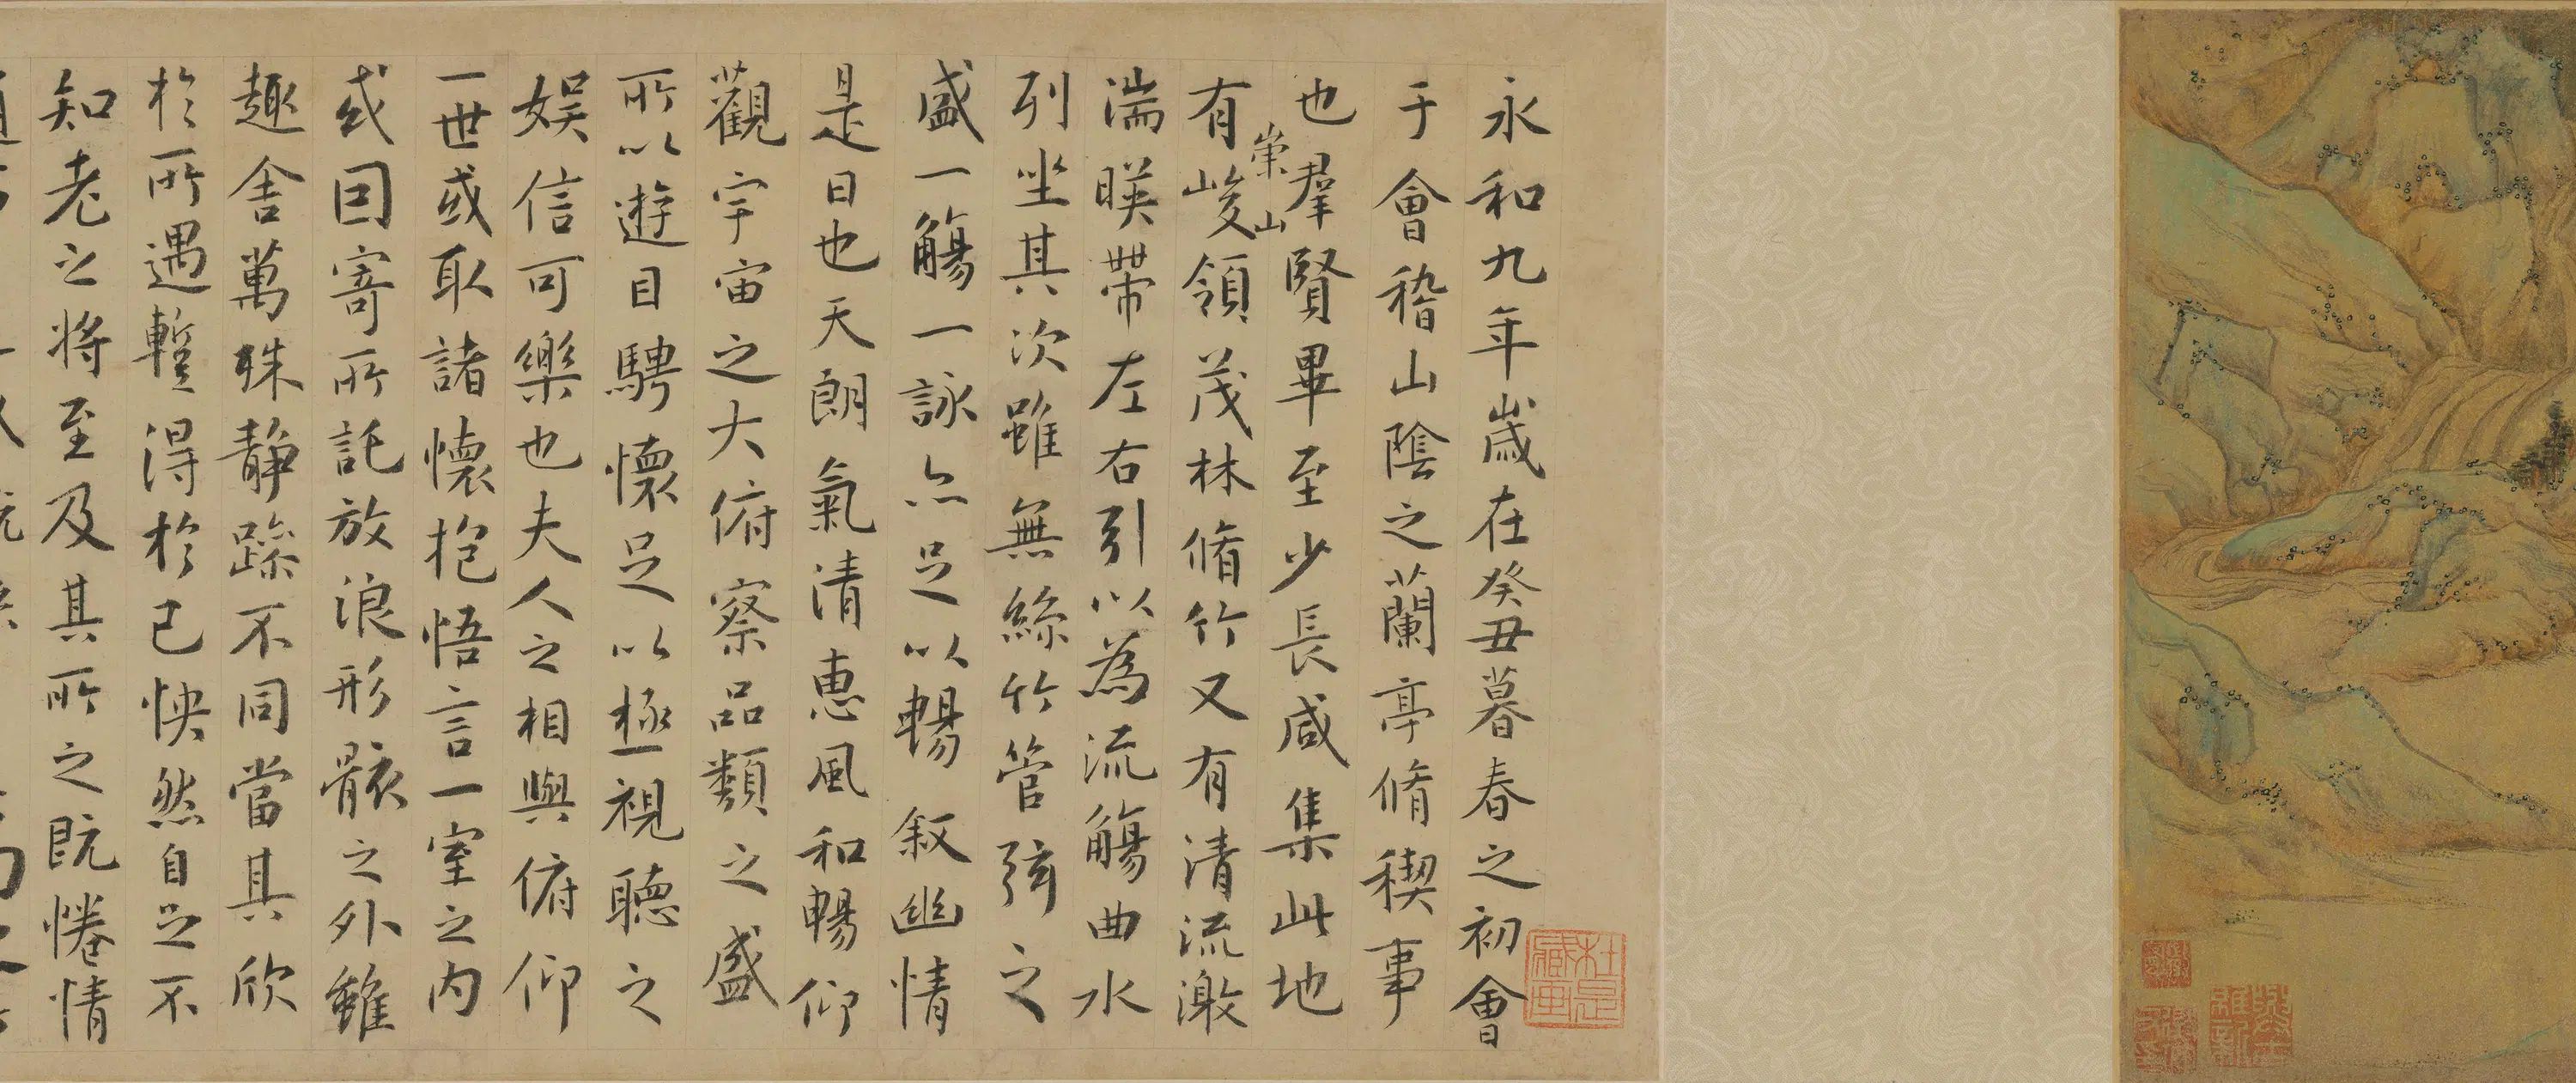 永和九年歲在癸丑暮春之初會
于會稽山陰之蘭亭脩稧事
也羣賢畢至少長咸集此地
有崇山峻領茂林脩竹又有清流激
湍暎帶左右引以為流觴曲水
列坐其次雖無絲竹管弦之
盛一觴一詠亦足以暢叙幽情
是日也天朗氣清惠風和暢仰
觀宇宙之大俯察品類之盛
所以遊目騁懷足以極視聽之
娛信可樂也夫人之相與俯仰
一世或取諸懷抱悟言一室之内
或因寄所託放浪形骸之外雖
趣舍萬殊静躁不同當其欣
於所遇蹔得於己怏然自足不
知老之将至及其所之既惓情